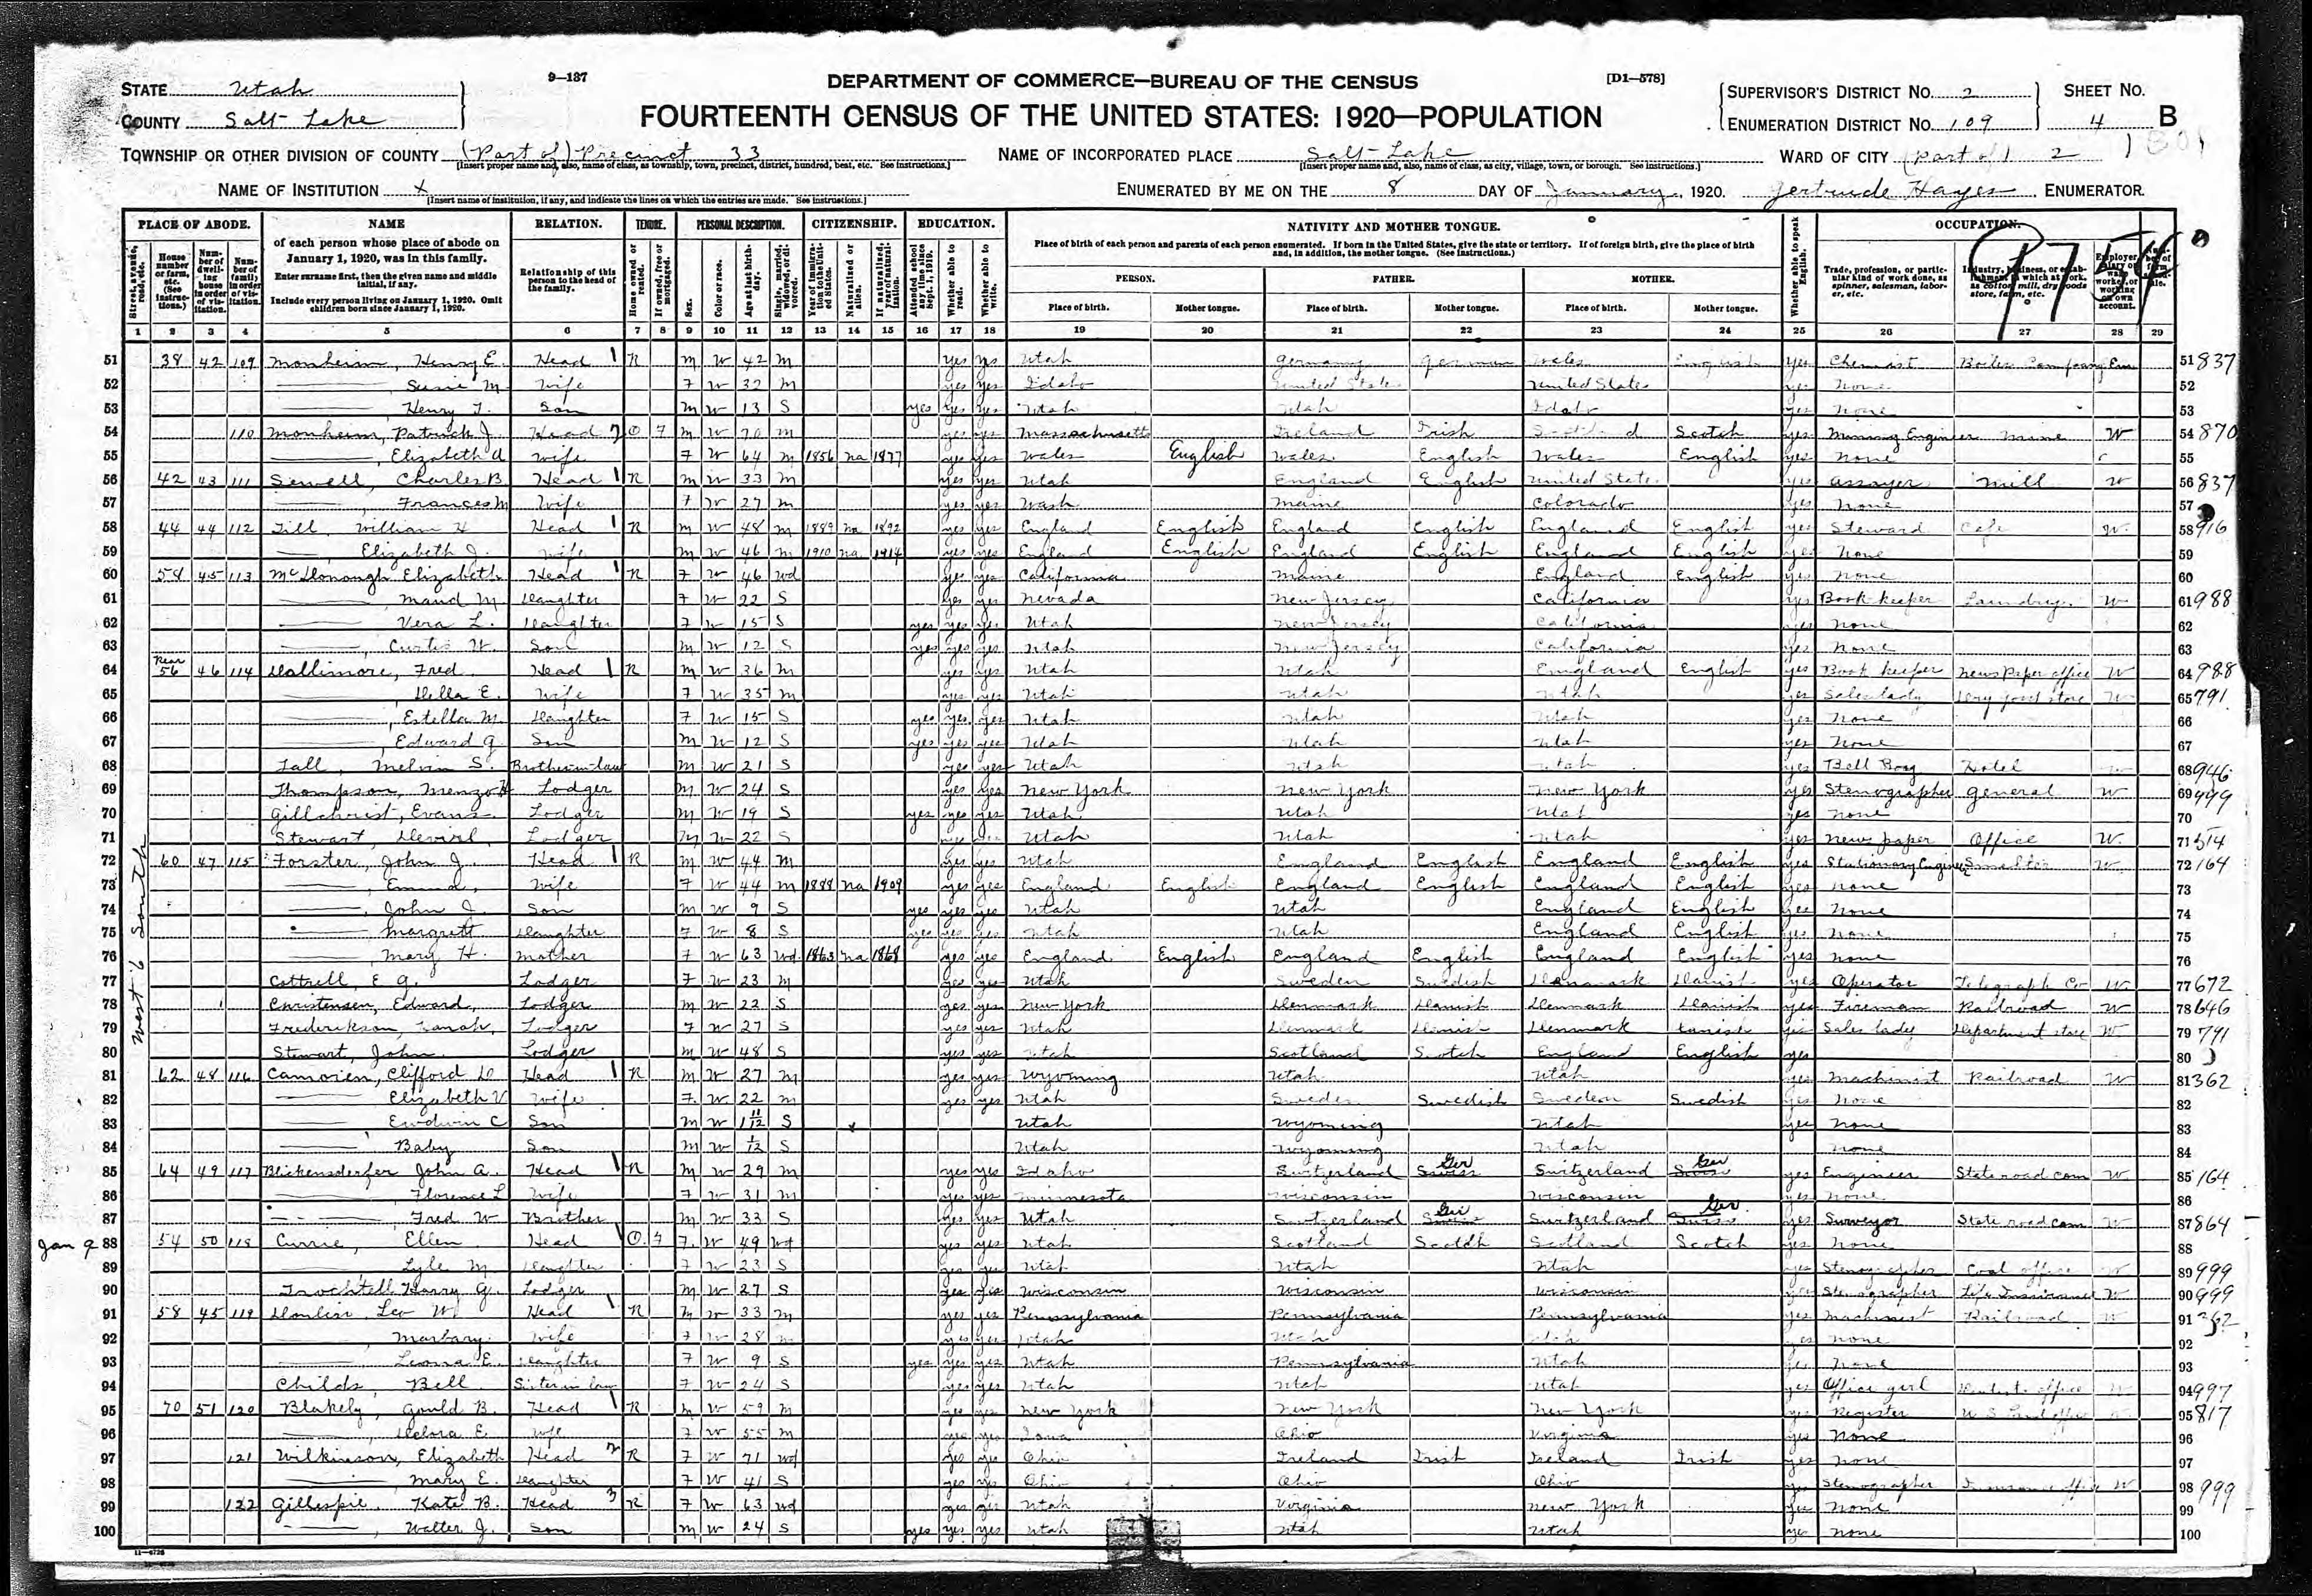 9—137
DEPARTMENT OF COMMERCE—BUREAU OF THE CENSUS
[D1—578]
STATE Utah
COUNTY Salt Lake
FOURTEENTH CENSUS OF THE UNITED STATES: 1920—POPULATION
SUPERVISOR'S DISTRICT NO. 2
ENUMERATION DISTRICT NO. 109
SHEET NO. 4 B
TOWNSHIP OR OTHER DIVISION OF COUNTY (Part of) Precinct 33
[Insert proper name and, also, name of class, as township, town, precinct, district, hundred, beat, etc. See instructions.]
NAME OF INCORPORATED PLACE Salt Lake
[Insert proper name and, also, name of class, as city, village, town, or borough. See instructions.]
WARD OF CITY (part of) 2
NAME OF INSTITUTION X
[Insert name of institution, if any, and indicate the lines on which the entries are made. See instructions.]
ENUMERATED BY ME ON THE 8 DAY OF January, 1920. Gertrude Hayes ENUMERATOR.
PLACE OF ABODE. NAME RELATION. TENURE. PERSONAL DESCRIPTION. CITIZENSHIP. EDUCATION. NATIVITY AND MOTHER TONGUE. OCCUPATION.
of each person whose place of abode on January 1, 1920, was in this family.
Enter surname first, then the given name and middle initial, if any.
Include every person living on January 1, 1920. Omit children born since January 1, 1920.
Relationship of this person to the head of the family.
Place of birth of each person and parents of each person enumerated. If born in the United States, give the state or territory. If of foreign birth, give the place of birth and, in addition, the mother tongue. (See instructions.)
PERSON. FATHER. MOTHER.
Place of birth. Mother tongue. Place of birth. Mother tongue. Place of birth. Mother tongue.
Whether able to speak English.
Trade, profession, or particular kind of work done, as spinner, salesman, laborer, etc.
1 2 3 4 5 6 7 8 9 10 11 12 13 14 15 16 17 18 19 20 21 22 23 24 25 26 27 28 29
51 38 42 109 Monheim, Henry E. Head 1 R M W 42 M yes yes Utah Germany German Wales English yes Chemist 51 837
52 Susie M. Wife F W 32 M yes yes Idaho United States United States yes None 52
53 Henry Son M W 13 S yes yes yes Utah Utah Idaho yes None 53
54 110 Monheim, Patrick J. Head 2 O F M W 70 M yes yes Massachusetts Ireland Irish Scotch yes Mining Engineer Mine W 54 870
55 Elizabeth A Wife F W 64 M 1856 na 1877 yes yes Wales English Wales English Wales English yes None 55
56 42 43 111 Sewell, Charles B. Head 1 R M W 33 M yes yes Utah England English United States yes Assayer Mill W 56 837
57 Frances M Wife F W 27 M yes yes Wash. Maine Colorado yes None 57
58 44 44 112 Till, William H Head 1 R M W 48 M 1889 na 1892 yes yes England English England English England English yes Steward Cafe W 58 916
59 Elizabeth J. Wife M W 46 M 1910 na 1914 yes yes England English England English England English yes None 59
60 58 45 113 McDonough Elizabeth Head 1 R F W 46 Wd yes yes California Maine England English yes None 60
61 Maud M. Daughter F W 22 S yes yes Nevada New Jersey California yes Book keeper Laundry W 61 988
62 Vera L. Daughter F W 15 S yes yes yes Utah New Jersey California yes None 62
63 Curtis W. Son M W 12 S yes yes yes Utah New Jersey California yes None 63
64 Rear 56 46 114 Dallimore, Fred Head 1 R M W 36 M yes yes Utah Utah England English yes Book keeper News Paper office W 64 988
65 Della E. Wife F W 35 M yes yes Utah Utah Utah yes Saleslady Dry good store W 65 791
66 Estella M. Daughter F W 15 S yes yes yes Utah Utah Utah yes None 66
67 Edward G. Son M W 12 S yes yes yes Utah Utah Utah yes None 67
68 Tall, Melvin S. Brother in law M W 21 S yes yes Utah Utah Utah yes Bell Boy Hotel 68 946
69 Thompson, Lodger M W 24 S yes yes New York New York New York yes Stenographer General W 69 999
70 Gillchrist, Evans Lodger M W 19 S yes yes yes Utah Utah Utah yes None 70
71 Stewart, Lodger M W 22 S Utah Utah Utah yes News paper Office W. 71 514
72 60 47 115 Forster, John J. Head 1 R M W 44 M yes yes Utah England English England English yes Stationary Engineer Smelter W 72 164
73 Emma, Wife F W 44 M 1888 na 1909 yes yes England English England English England English yes None 73
74 John J. Son M W 9 S yes yes yes Utah Utah England English yes None 74
75 Margrett Daughter F W 8 S yes yes yes Utah Utah England English yes None 75
76 Mary H. Mother F W 63 Wd 1863 na 1868 yes yes England English England English England English yes None 76
77 Cottrell, E G. Lodger F W 23 M yes yes Utah Sweden Swedish Denmark Danish yes Operator Telegraph Co W 77 672
78 Christensen, Edward, Lodger M W 22 S yes yes New York Denmark Danish Denmark Danish yes Fireman Railroad W 78 646
79 Frederikson, Sarah, Lodger F W 27 S yes yes Utah Denmark Danish Denmark Danish yes Sales lady Department store W 79 791
80 Stewart, John Lodger M W 48 S yes yes Utah Scotland Scotch England English yes 80
81 62 48 116 Clifford D Head 1 R M W 27 M yes yes Wyoming Utah Utah yes Machinist Railroad W 81 362
82 Elizabeth V Wife F W 22 M yes yes Utah Sweden Swedish Sweden Swedish yes None 82
83 Son M W 1 11/12 S Utah Wyoming Utah yes None 83
84 Baby Son M W 1/12 S Utah Wyoming Utah None 84
85 64 49 117 Blickensderfer John A. Head 1 R M W 29 M yes yes Idaho Switzerland Swiss Ger Switzerland Swiss Ger yes Engineer State road com W 85 164
86 Florence L Wife F W 31 M yes yes Minnesota Wisconsin Wisconsin yes None 86
87 Fred W Brother M W 33 S yes yes Utah Switzerland Swiss Ger Switzerland Swiss Ger. yes Surveyor State road com W 87 864
Jan 9 88 54 50 118 Currie, Ellen Head 1 O F F W 49 Wd yes yes Utah Scotland Scotch Scotland Scotch yes None 88
89 Lyle M Daughter F W 23 S yes yes Utah Utah Utah yes Stenographer Coal office W 89 999
90 Trochtell Harry G. Lodger M W 27 S yes yes Wisconsin Wisconsin Wisconsin yes Stenographer Life Insurance W 90 999
91 58 45 119 Leo W Head 1 R M W 33 M yes yes Pennsylvania Pennsylvania Pennsylvania yes Machinist Railroad W 91 362
92 Wife F W 28 M yes yes Utah Utah Utah yes None 92
93 Leona E. Daughter F W 9 S yes yes yes Utah Pennsylvania Utah yes None 93
94 Childs, Bell Sister in law F W 24 S yes yes Utah Utah Utah yes Office girl Dentist office W 94 997
95 70 51 120 Blakely, Gould B. Head 1 R M W 59 M yes yes New York New York New York yes Register U S Land office 95 817
96 Delora E. Wife F W 55 M yes yes Iowa Ohio Virginia yes None 96
97 121 Wilkinson, Elizabeth Head 2 R F W 71 Wd yes yes Ohio Ireland Irish Ireland Irish yes None 97
98 Mary E. Daughter F W 41 S yes yes Ohio Ohio Ohio yes Stenographer Insurance office W 98 999
99 122 Gillespie, Kate B. Head 3 R F W 63 Wd yes yes Utah Virginia New York yes None 99
100 Walter J. Son M W 24 S yes yes yes Utah Utah Utah yes None 100